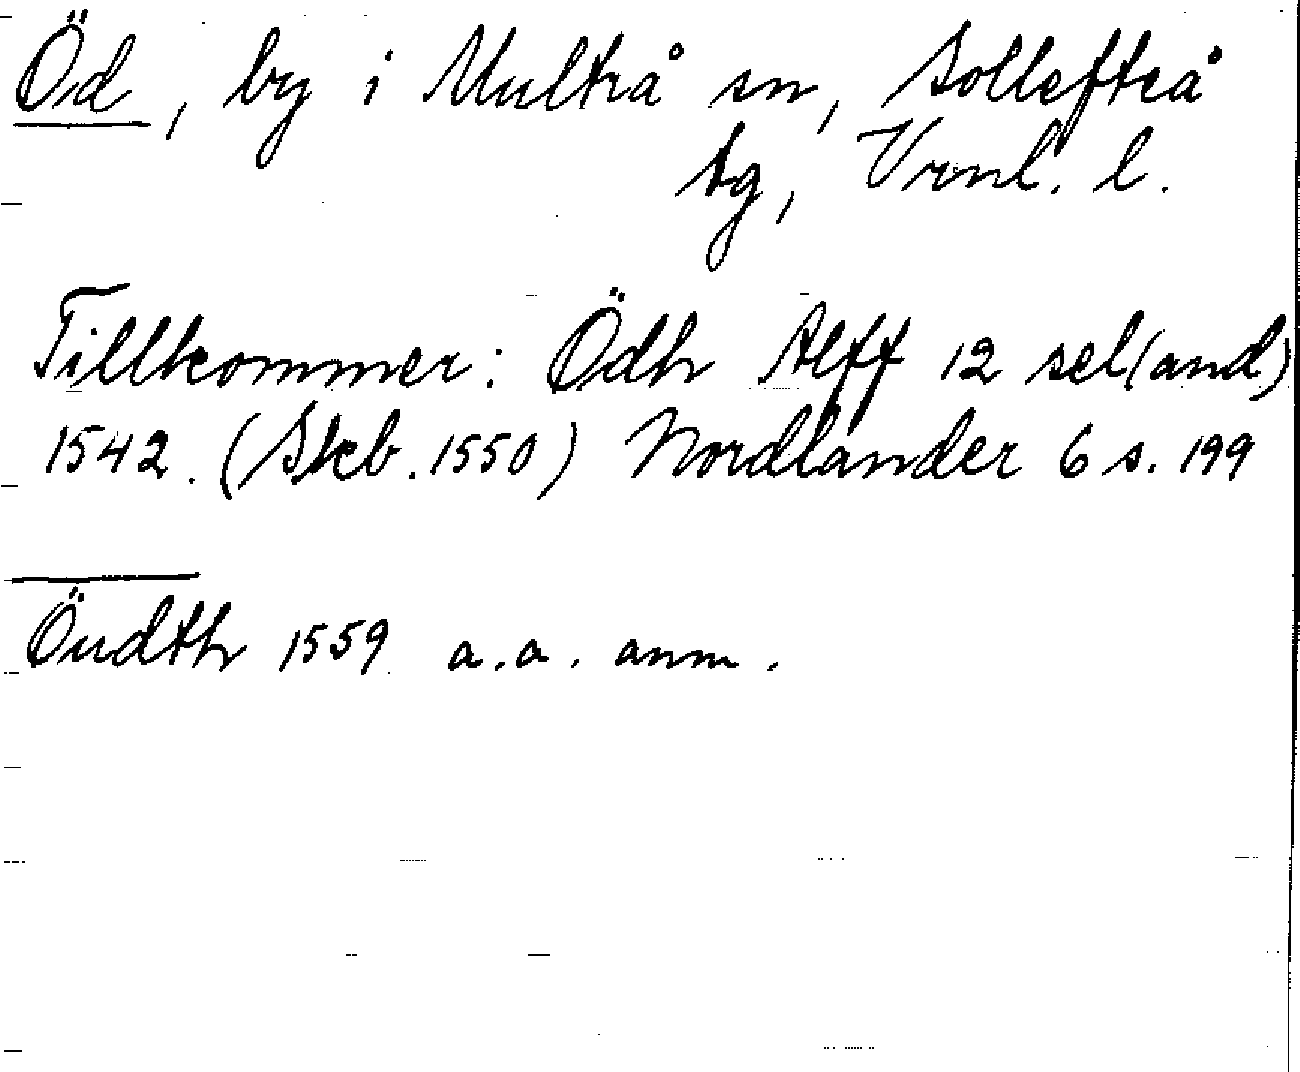 Öd, by i Multrå sn, Sollefteå
tg, Vrnl. l.
Tillkommer: Ödh Alff 12 sel(and)
1542. (Skb. 1550) Nordlander 6 s. 199
Öudth 1559 a.a. anm.